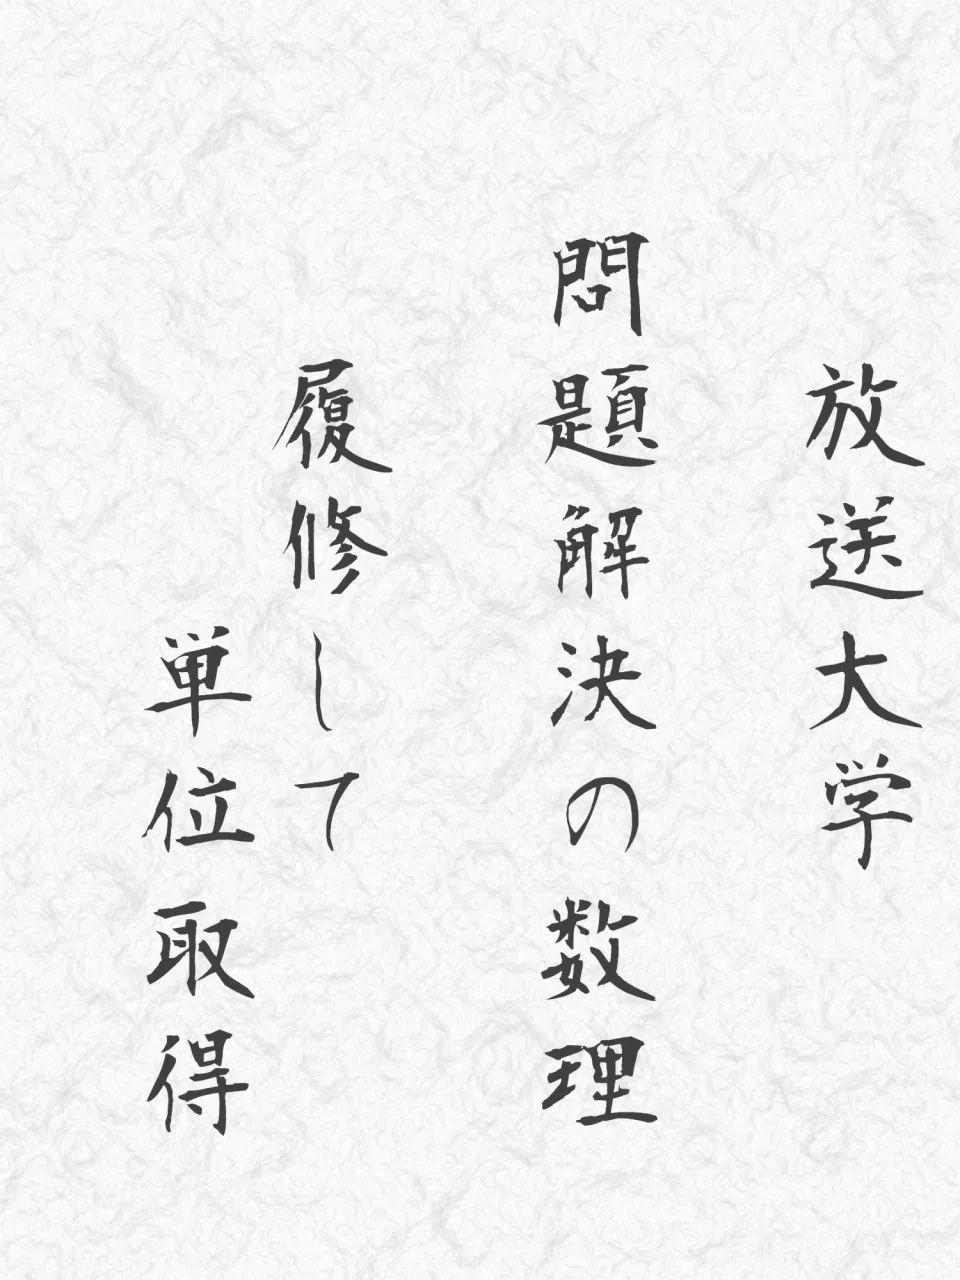 放送大学
問題解決の数理
履修して
単位取得